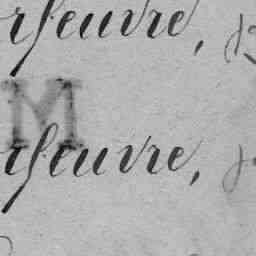 rfeuvre,
M
rfeuvre,